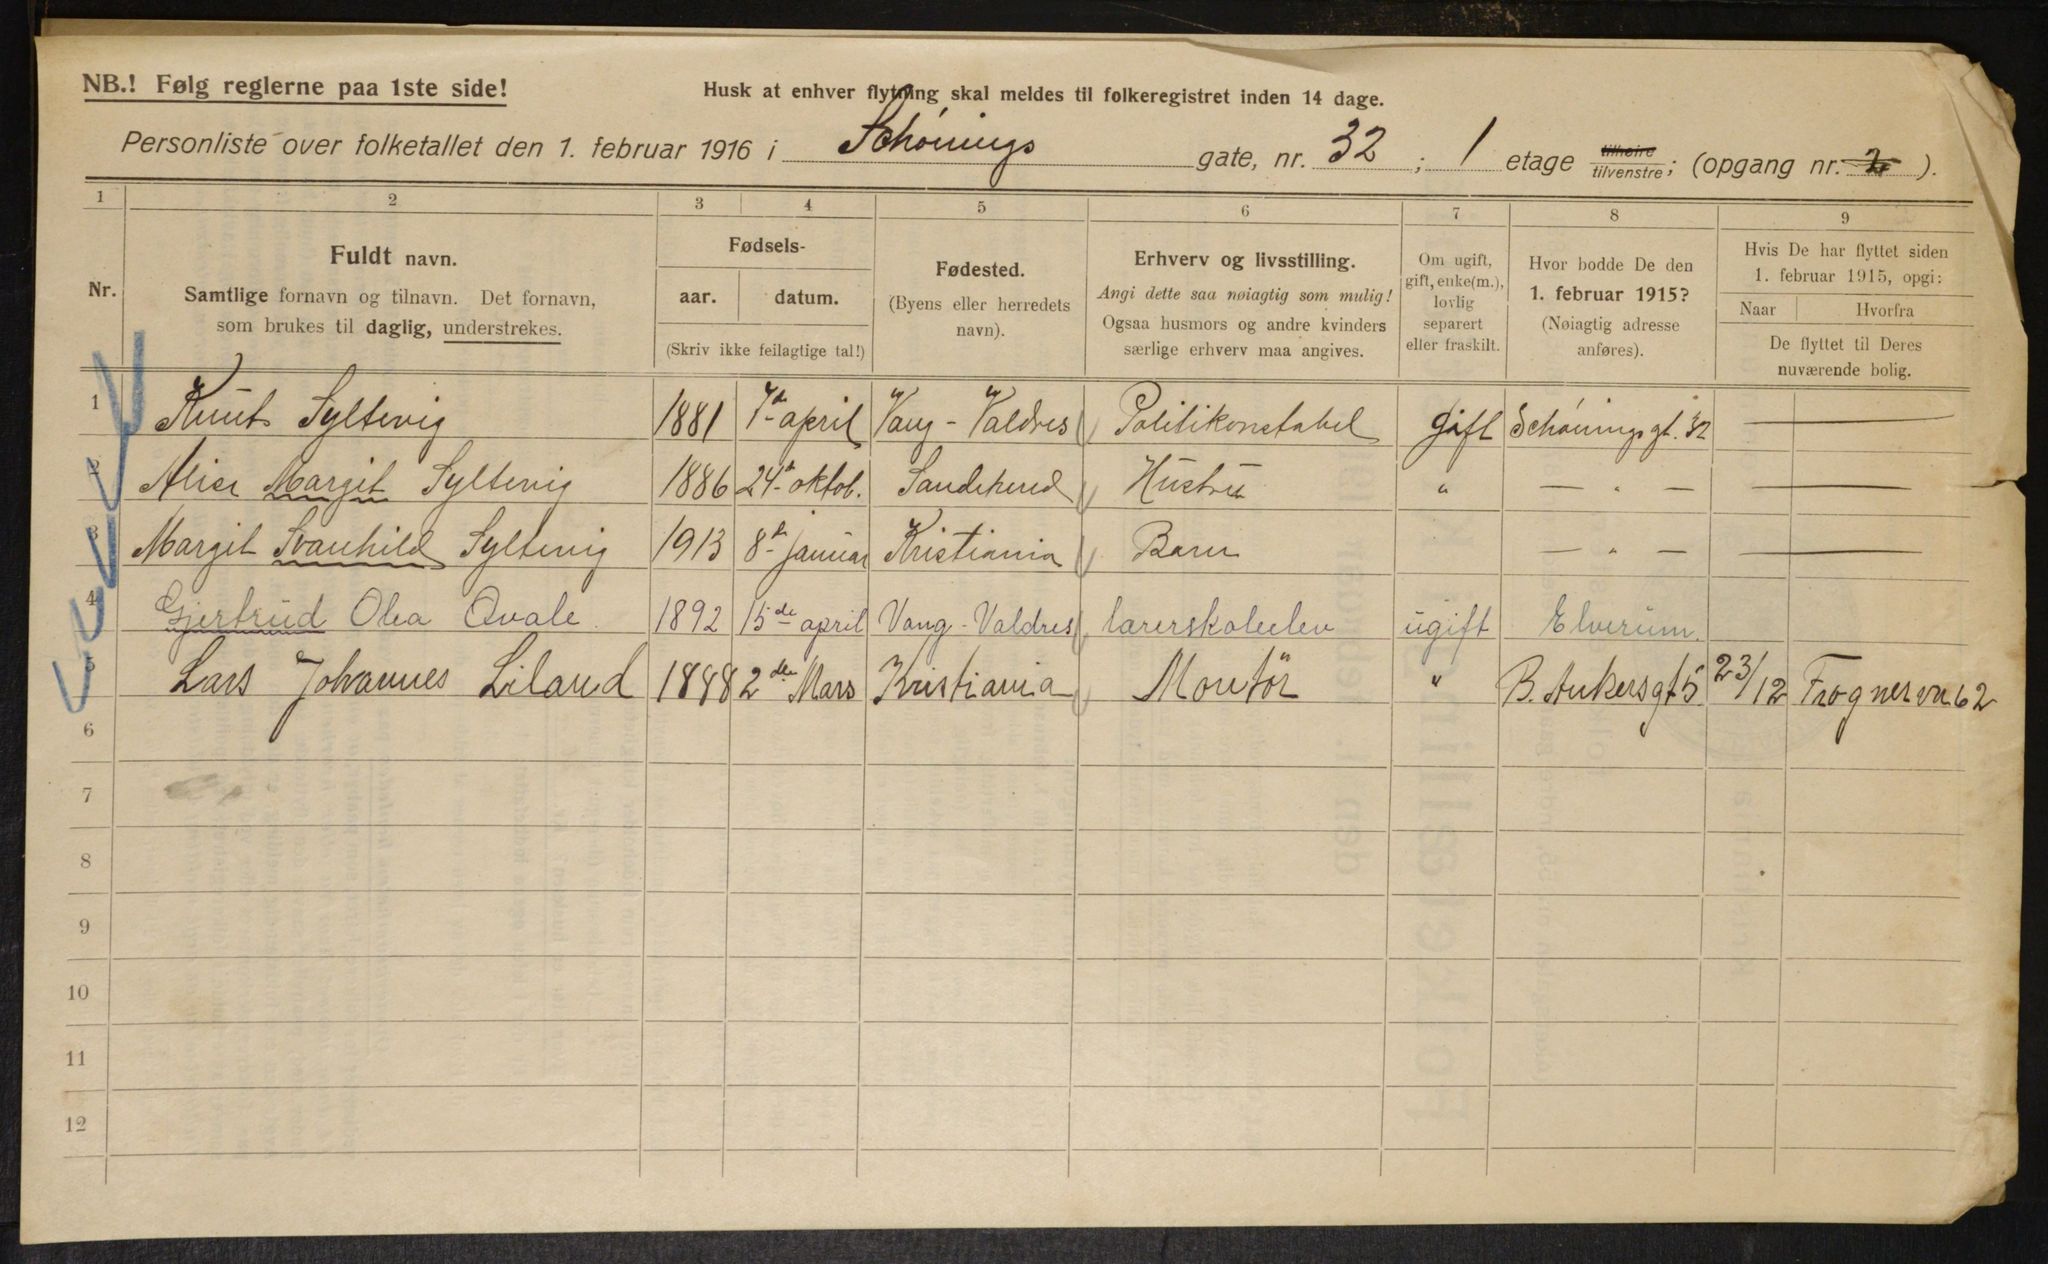 NB.! Følg reglerne paa 1ste side!
Husk at enhver flytning skal meldes til folkeregistret inden 14 dage.
Personliste over folketallet den 1. februar 1916 i Schønings gate, nr. 32 ; 1 etage tilhøire tilvenstre ; (opgang nr. 2 ).
1 2 3 4 5 6 7 8 9
Nr.
Fuldt navn.
Samtlige fornavn og tilnavn. Det fornavn,
som brukes til daglig, understrekes.
Fødsels-
aar. datum.
(Skriv ikke feilagtige tal!)
Fødested.
(Byens eller herredets
navn).
Erhverv og livsstilling.
Angi dette saa nøiagtig som mulig!
Ogsaa husmors og andre kvinders
særlige erhverv maa angives.
Om ugift,
gift, enke(m.),
lovlig
separert
eller fraskilt.
Hvor bodde De den
1. februar 1915?
(Nøiagtig adresse
anføres).
Hvis De har flyttet siden
1. februar 1915, opgi:
Naar Hvorfra
De flyttet til Deres
nuværende bolig.
1 Knut Syltevig 1881 7de april Vang - Valdres Politikonstabel gift Schønings gt. 32 — —
2 Alise Margit Syltevig 1886 24de oktob. Sandeherred Hustru " — " — — —
3 Margit Svanhild Syltevig 1913 8de januar Kristiania Barn — " — — —
4 Gjertrud Olea Qvale. 1892 15de april Vang - Valdres lærerskoleelev ugift Elverum.
5 Lars Johannes Liland 1888 2de Mars Kristiania Montör " B. Ankersgt 5. 23/12 Frognervn 62
6
7
8
9
10
11
12